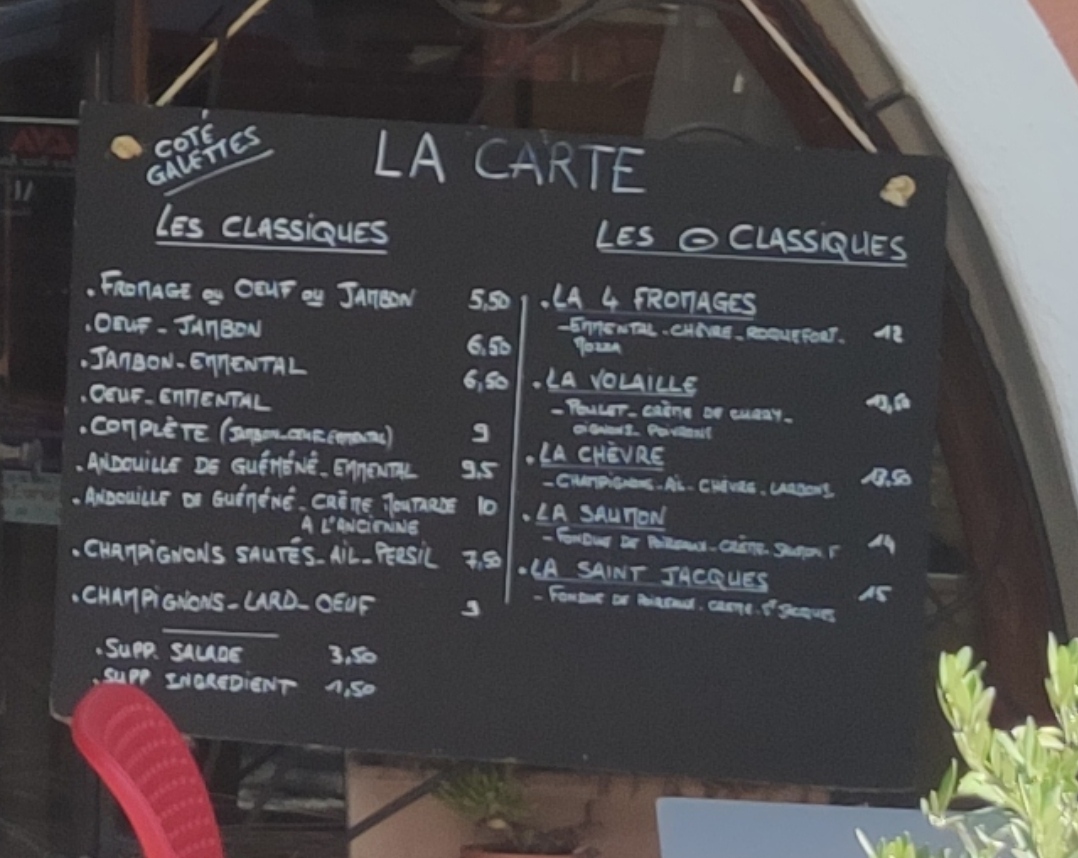 COTÉ
GALETTES
LA CARTE
LES CLASSIQUES
. FROMAGE OU OEUF OU JAMBON 5,50
. OEUF - JAMBON 6,50
. JAMBON - EMMENTAL 6,50
. OEUF - EMMENTAL
. COMPLÈTE (JAMBON-OEUF-EMMENTAL) 9
. ANDOUILLE DE GUÉMÉNÉ - EMMENTAL 9,5
. ANDOUILLE DE GUÉMÉNÉ - CRÈME MOUTARDE 10
A L'ANCIENNE
. CHAMPIGNONS SAUTÉS - AIL - PERSIL 7,50
. CHAMPIGNONS - LARD - OEUF 9
. SUPP. SALADE 3,50
. SUPP INGREDIENT 1,50
LES ⊖ CLASSIQUES
. LA 4 FROMAGES
- EMMENTAL - CHÈVRE - ROQUEFORT - 12
MOZZA
. LA VOLAILLE
- POULET - CRÈME DE CURRY - 13,50
OIGNONS - POIVRONS
. LA CHÈVRE
- CHAMPIGNONS - AIL - CHÈVRE - LARDONS 13,50
. LA SAUMON
- FONDUE DE POIREAUX - CRÈME - SAUMON F 14
. LA SAINT JACQUES
- FONDUE DE POIREAUX - CREME - ST JACQUES 15